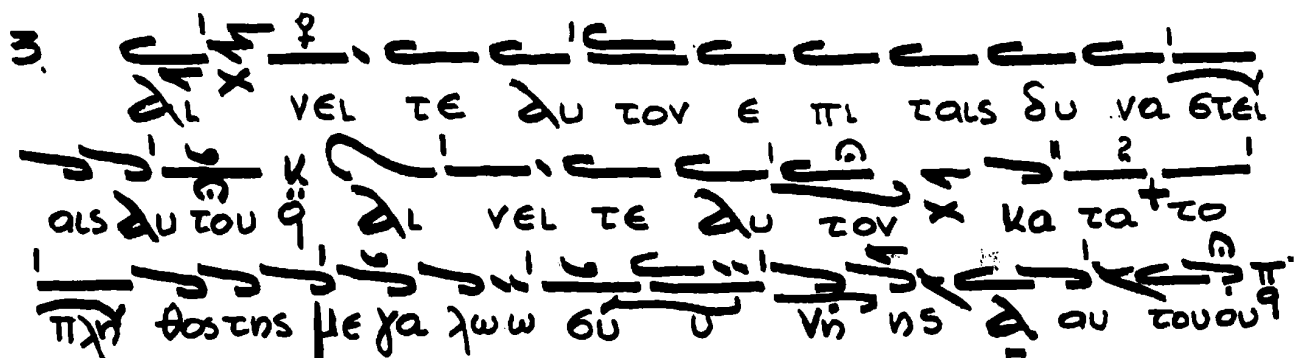 3. αι νει τε αυ τον ε πι ταις δυ να στει
αις αυ του αι νει τε αυ τον κα τα το
πλη θος της με γα λω ω συ υ νη ης α αυ του ου